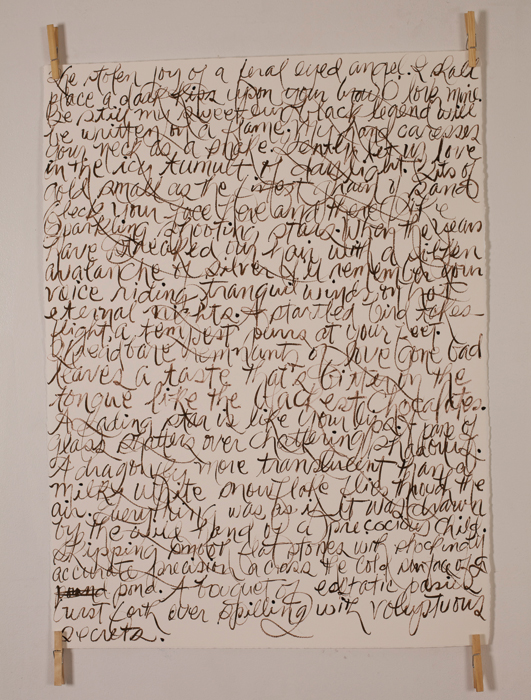 stolen joy of a feral eyed angel. I shall
place a dark kiss upon your brow love mine.
Be still my sweet our black legend will
be written on a flame. My hand caresses
your neck as a snake. let us love
in the icy tumult of dark light. bits of
cold small as the finest grain of sand
fleck your face love and there like
sparkling shooting stars. When the years
have streaked our hair with a
avalanche of silver I'll remember your
voice riding tranquil winds on hot
eternal nights. A startled bird takes
flight, a tempest purrs at your feet.
remnants of love gone bad
leaves a taste that's bitter on the
tongue like the blackest chocolates.
A fading star is like your lips. A pane of
glass over chattering shadows.
A dragonfly more translucent than a
milky white snowflake flies through the
air. everything was as if it was drawn
by the wise hand of a precocious child.
skipping smooth flat stones with shockingly
accurate precision across the cold surface of a
pond. A bouquet of ecstatic
burst forth over spilling with voluptuous
secrets.